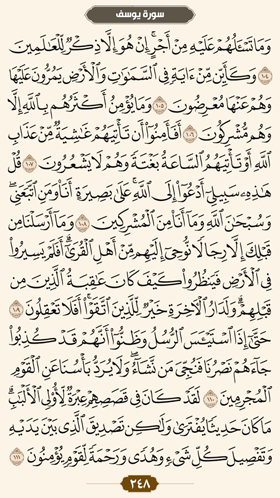 سورة يوسف
وَمَا تَسْـَٔلُهُمْ عَلَيْهِ مِنْ أَجْرٍ ۚ إِنْ هُوَ إِلَّا ذِكْرٌ لِّلْعَـٰلَمِينَ
١٠٤ وَكَأَيِّن مِّنْ ءَايَةٍ فِى ٱلسَّمَـٰوَٰتِ وَٱلْأَرْضِ يَمُرُّونَ عَلَيْهَا
وَهُمْ عَنْهَا مُعْرِضُونَ ١٠٥ وَمَا يُؤْمِنُ أَكْثَرُهُم بِٱللَّهِ إِلَّا
وَهُم مُّشْرِكُونَ ١٠٦ أَفَأَمِنُوٓا۟ أَن تَأْتِيَهُمْ غَـٰشِيَةٌ مِّنْ عَذَابِ
ٱللَّهِ أَوْ تَأْتِيَهُمُ ٱلسَّاعَةُ بَغْتَةً وَهُمْ لَا يَشْعُرُونَ ١٠٧ قُلْ
هَـٰذِهِۦ سَبِيلِىٓ أَدْعُوٓا۟ إِلَى ٱللَّهِ ۚ عَلَىٰ بَصِيرَةٍ أَنَا۠ وَمَنِ ٱتَّبَعَنِى ۖ
وَسُبْحَـٰنَ ٱللَّهِ وَمَآ أَنَا۠ مِنَ ٱلْمُشْرِكِينَ ١٠٨ وَمَآ أَرْسَلْنَا مِن
قَبْلِكَ إِلَّا رِجَالًا نُّوحِىٓ إِلَيْهِم مِّنْ أَهْلِ ٱلْقُرَىٰٓ ۗ أَفَلَمْ يَسِيرُوا۟
فِى ٱلْأَرْضِ فَيَنظُرُوا۟ كَيْفَ كَانَ عَـٰقِبَةُ ٱلَّذِينَ مِن
قَبْلِهِمْ ۗ وَلَدَارُ ٱلْـَٔاخِرَةِ خَيْرٌ لِّلَّذِينَ ٱتَّقَوْا۟ ۗ أَفَلَا تَعْقِلُونَ ١٠٩
حَتَّىٰٓ إِذَا ٱسْتَيْـَٔسَ ٱلرُّسُلُ وَظَنُّوٓا۟ أَنَّهُمْ قَدْ كُذِبُوا۟
جَآءَهُمْ نَصْرُنَا فَنُجِّىَ مَن نَّشَآءُ ۖ وَلَا يُرَدُّ بَأْسُنَا عَنِ ٱلْقَوْمِ
ٱلْمُجْرِمِينَ ١١٠ لَقَدْ كَانَ فِى قَصَصِهِمْ عِبْرَةٌ لِّأُو۟لِى ٱلْأَلْبَـٰبِ ۗ
مَا كَانَ حَدِيثًا يُفْتَرَىٰ وَلَـٰكِن تَصْدِيقَ ٱلَّذِى بَيْنَ يَدَيْهِ
وَتَفْصِيلَ كُلِّ شَىْءٍ وَهُدًى وَرَحْمَةً لِّقَوْمٍ يُؤْمِنُونَ ١١١
٢٤٨